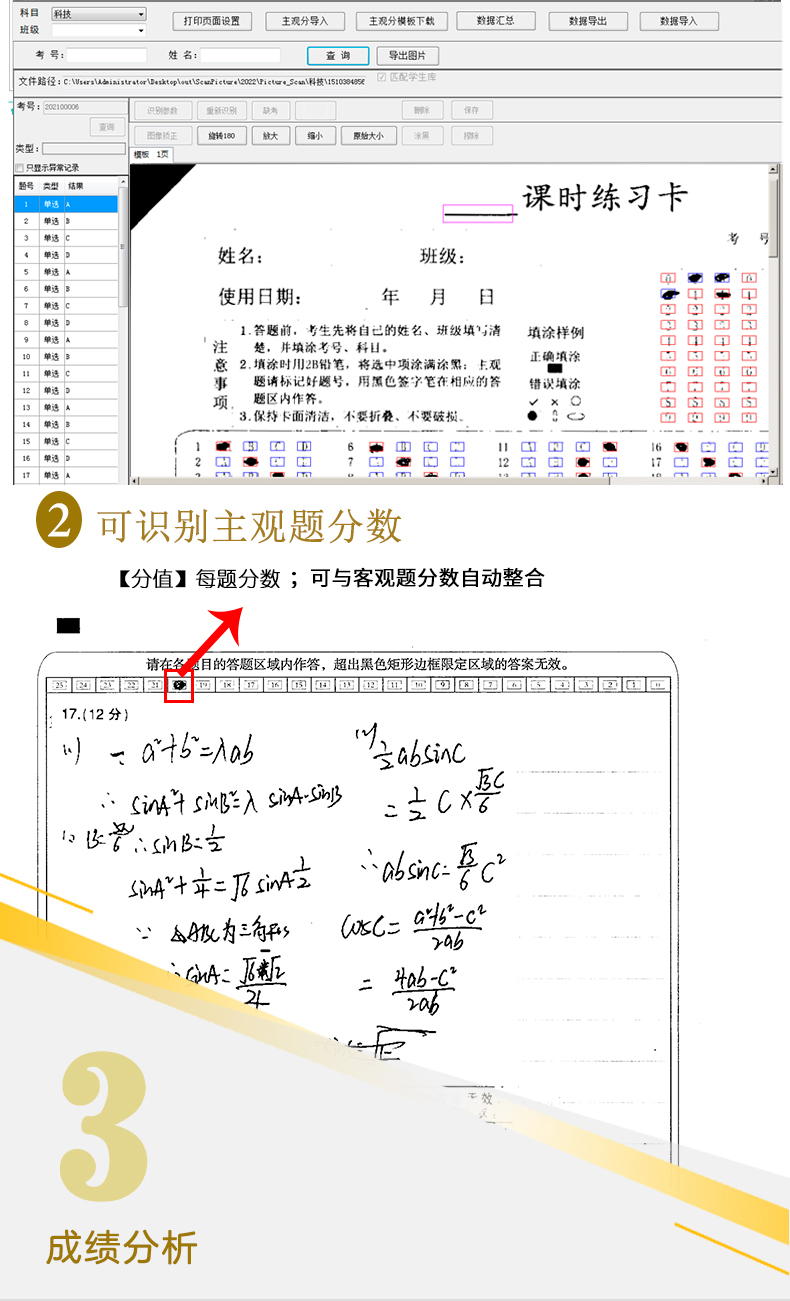 科目 科技 打印页面设置 主观分导入 主观分模板下载 数据汇总 数据导出 数据导入
班级
考 号: 姓 名: 查 询 导出图片
文件路径: C:\Users\Administrator\Desktop\out\ScanPicture\2022\Picture_Scan\科技\1510384856 匹配学生库
考号: 202100006 识别参数 重新识别 缺考 删除 保存
查询 图像矫正 旋转180 放大 缩小 原始大小 涂黑 擦除
类型:
模板 1页
只显示异常记录
题号 类型 结果
1 单选 A
2 单选 B
3 单选 C
4 单选 D
5 单选 A
6 单选 B
7 单选 C
8 单选 D
9 单选 A
10 单选 B
11 单选 C
12 单选 D
13 单选 A
14 单选 B
15 单选 C
16 单选 D
17 单选 A
课时练习卡
考 号
姓名: 班级:
使用日期: 年 月 日
注意事项
1.答题前，考生先将自己的姓名、班级填写清
楚，并填涂考号、科目。
2.填涂时用2B铅笔，将选中项涂满涂黑；主观
题请标记好题号，用黑色签字笔在相应的答
题区内作答。
3.保持卡面清洁，不要折叠、不要破损。
填涂样例
正确填涂
错误填涂
1 6 11 16
2 7 12 17
2 可识别主观题分数
【分值】每题分数 ；可与客观题分数自动整合
请在各题目的答题区域内作答，超出黑色矩形边框限定区域的答案无效。
25 24 23 22 21 19 18 17 16 15 14 13 12 11 10 9 8 7 6 5 4 3 2 1 0
17.(12 分)
a²+b²=λab
∴ sinA²+sinB²=λ sinA·sinB
∴sinB=1/2
sinA²+1/4=√6 sinA 1/2
∵ △ABC为三角形
sinA=
1/2 absinC
= 1/2 C × √3C/6
∴ absinC= √3/6 C²
cosC= a²+b²-c²/2ab
= 4ab-c²/2ab
无效
3
成绩分析